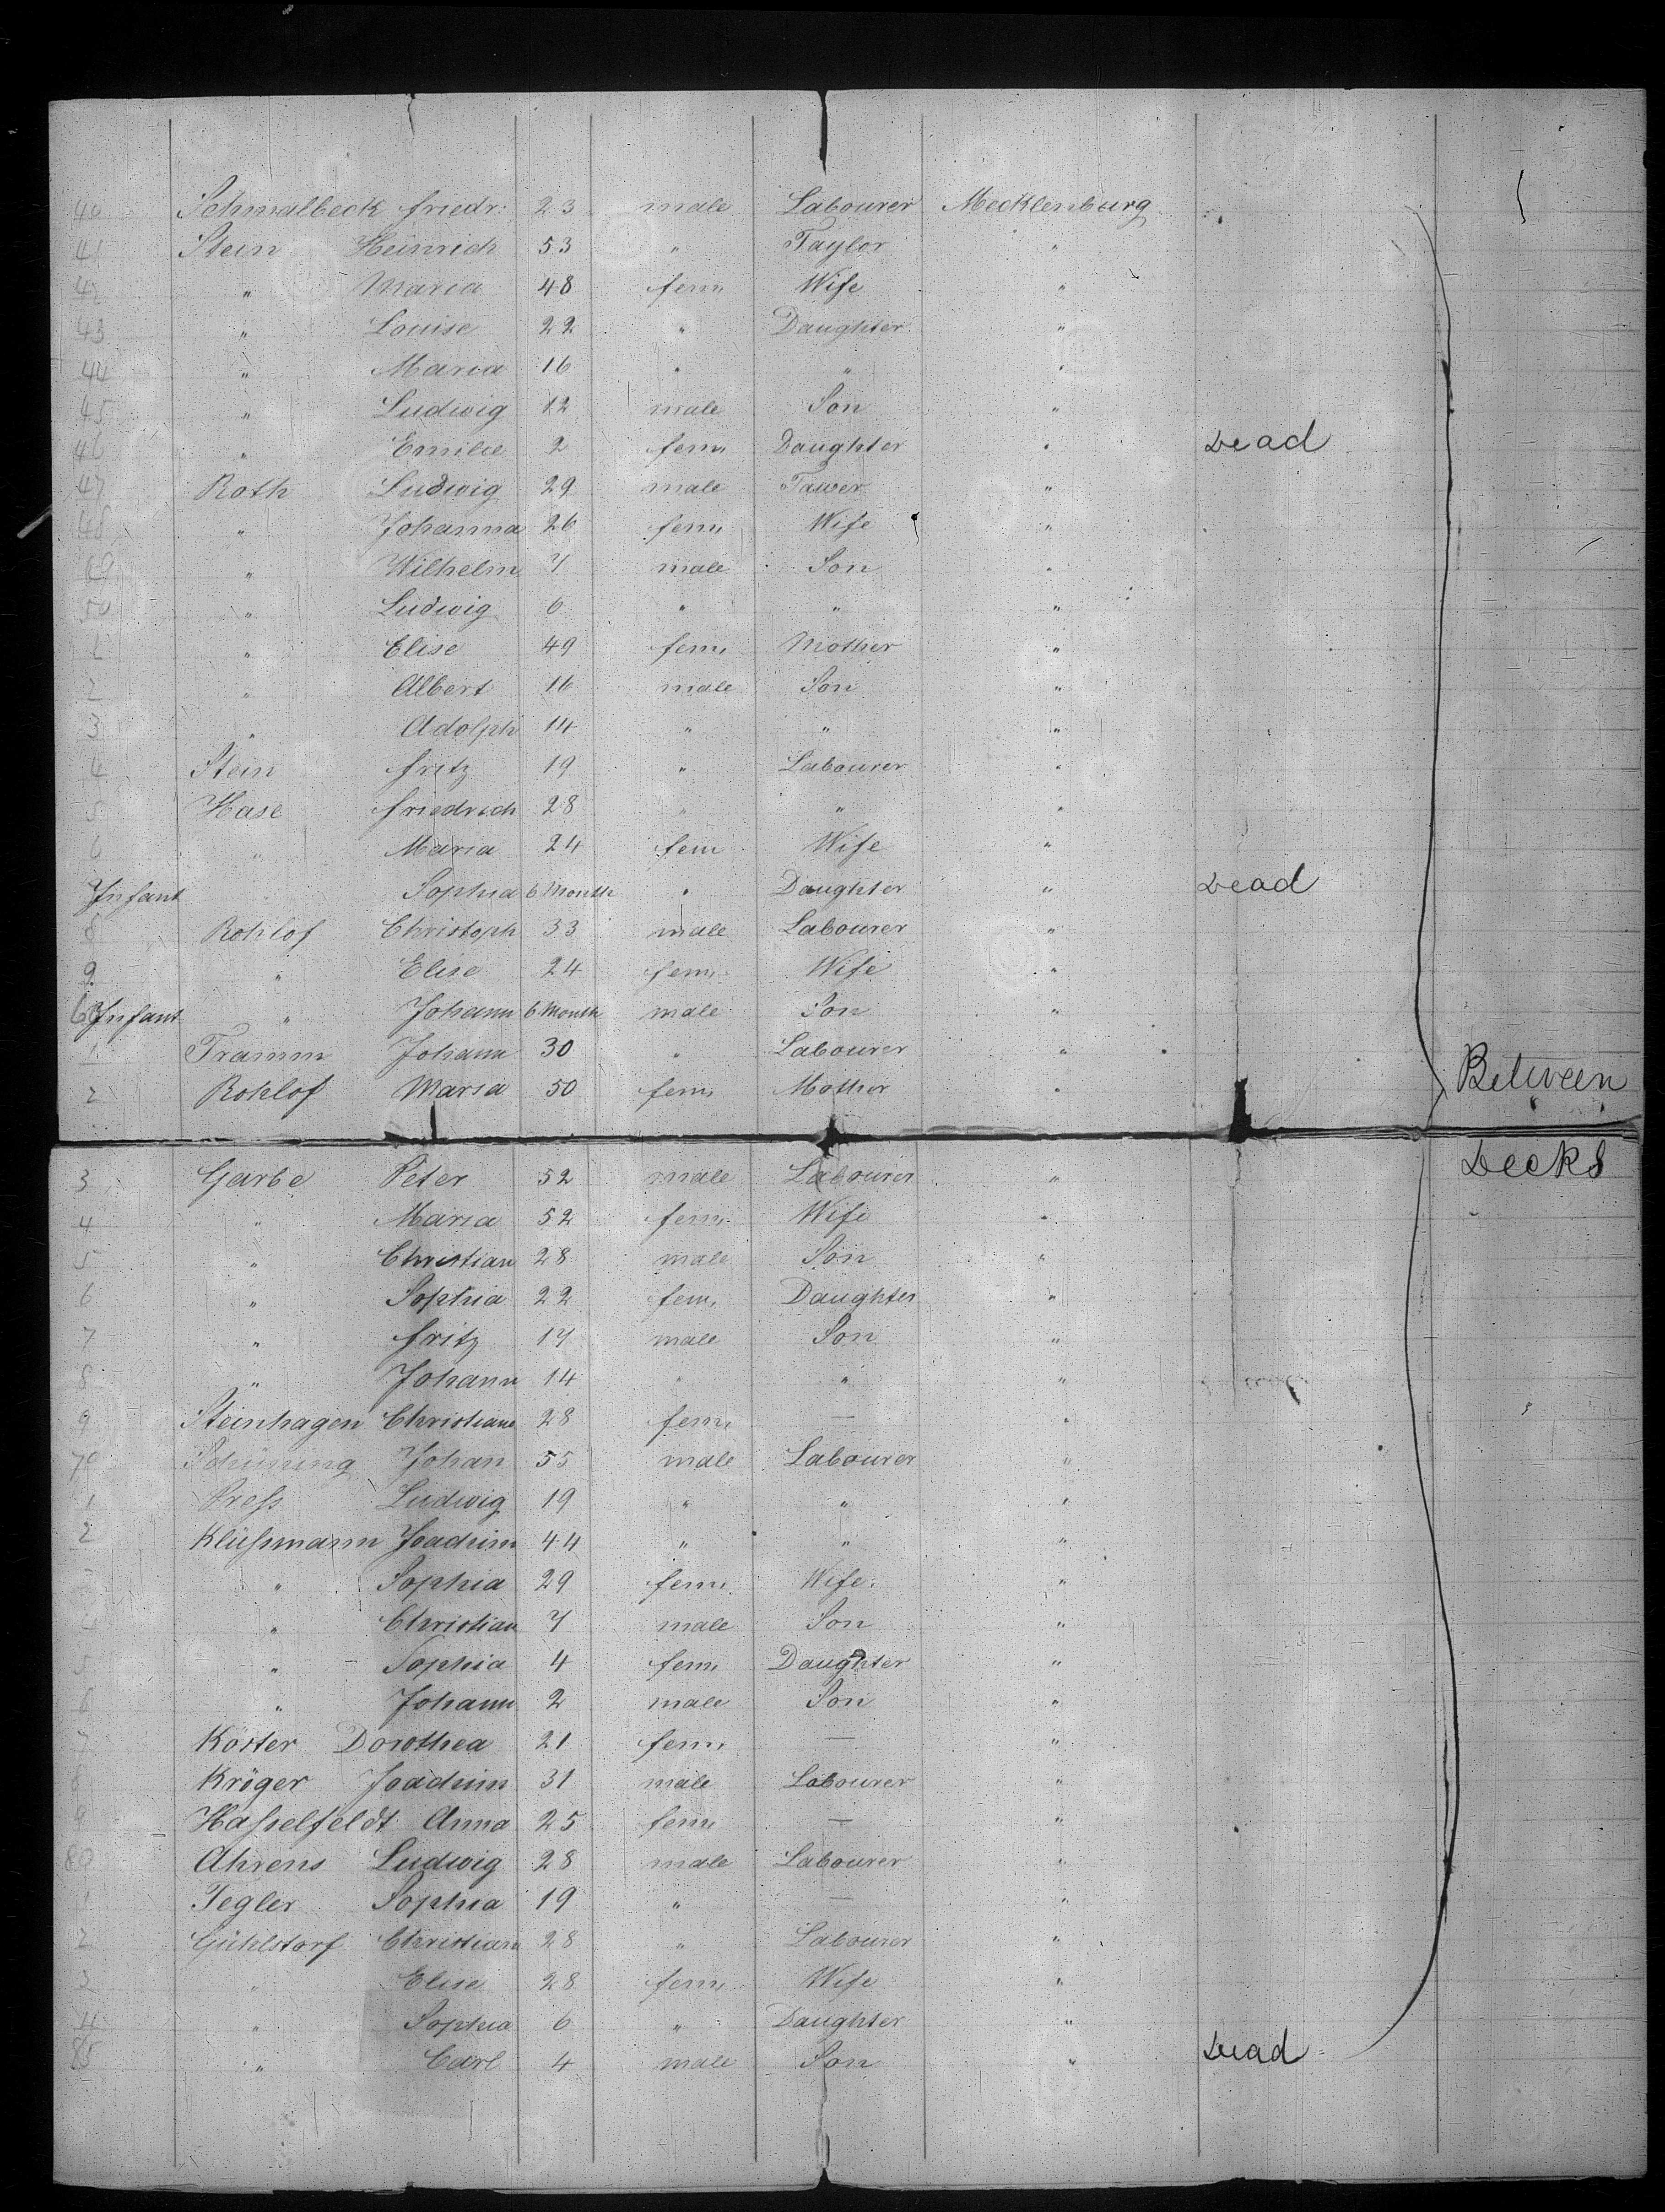 40 Schmalbeck Friedr. 23 male Labourer Mecklenburg
41 Stein Heinrich 53 " Taylor "
42 " Maria 48 fem. Wife "
43 " Louise 22 " Daughter "
44 " Maria 16 " " "
45 " Ludwig 12 male Son "
46 " Emilie 2 fem. Daughter " Dead
47 Roth Ludwig 29 male Tawer "
48 " Johanna 26 fem. Wife "
49 " Wilhelm 7 male Son "
50 " Ludwig 6 " " "
1 " Elise 49 fem. Mother "
2 " Albert 16 male Son "
3 " Adolph 14 " " "
4 Stein Fritz 19 " Labourer "
5 Hase Friedrich 28 " " "
6 " Maria 24 fem Wife "
Infant " Sophia 6 Month " Daughter " Dead
8 Rohlof Christoph 33 male Labourer "
9 " Elise 24 fem. Wife "
60 Infant " Johann 6 Month male Son "
1 Tramm Johann 30 " Labourer "
2 Rohlof Maria 50 fem. Mother " Between
3 Garbe Peter 52 male Labourer " Decks
4 " Maria 52 fem. Wife "
5 " Christian 28 male Son "
6 " Sophia 22 fem. Daughter "
7 " Fritz 17 male Son "
8 " Johann 14 " " "
9 Steinhagen Christiane 28 fem. — "
70 Schünning Johan 55 male Labourer "
1 Press Ludwig 19 " " "
2 Klüssmann Joachim 44 " " "
" Sophia 29 fem. Wife "
4 " Christian 7 male Son "
5 " Sophia 4 fem. Daughter "
6 " Johann 2 male Son "
7 Köster Dorothea 21 fem. — "
8 Kröger Joachim 31 male Labourer "
9 Hasselfeldt Anna 25 fem. — "
80 Ahrens Ludwig 28 male Labourer "
1 Tegler Sophia 19 " — "
2 Gühlstorf Christian 28 " Labourer "
3 " Elise 28 fem. Wife "
4 " Sophia 6 " Daughter "
85 " Carl 4 male Son " Dead